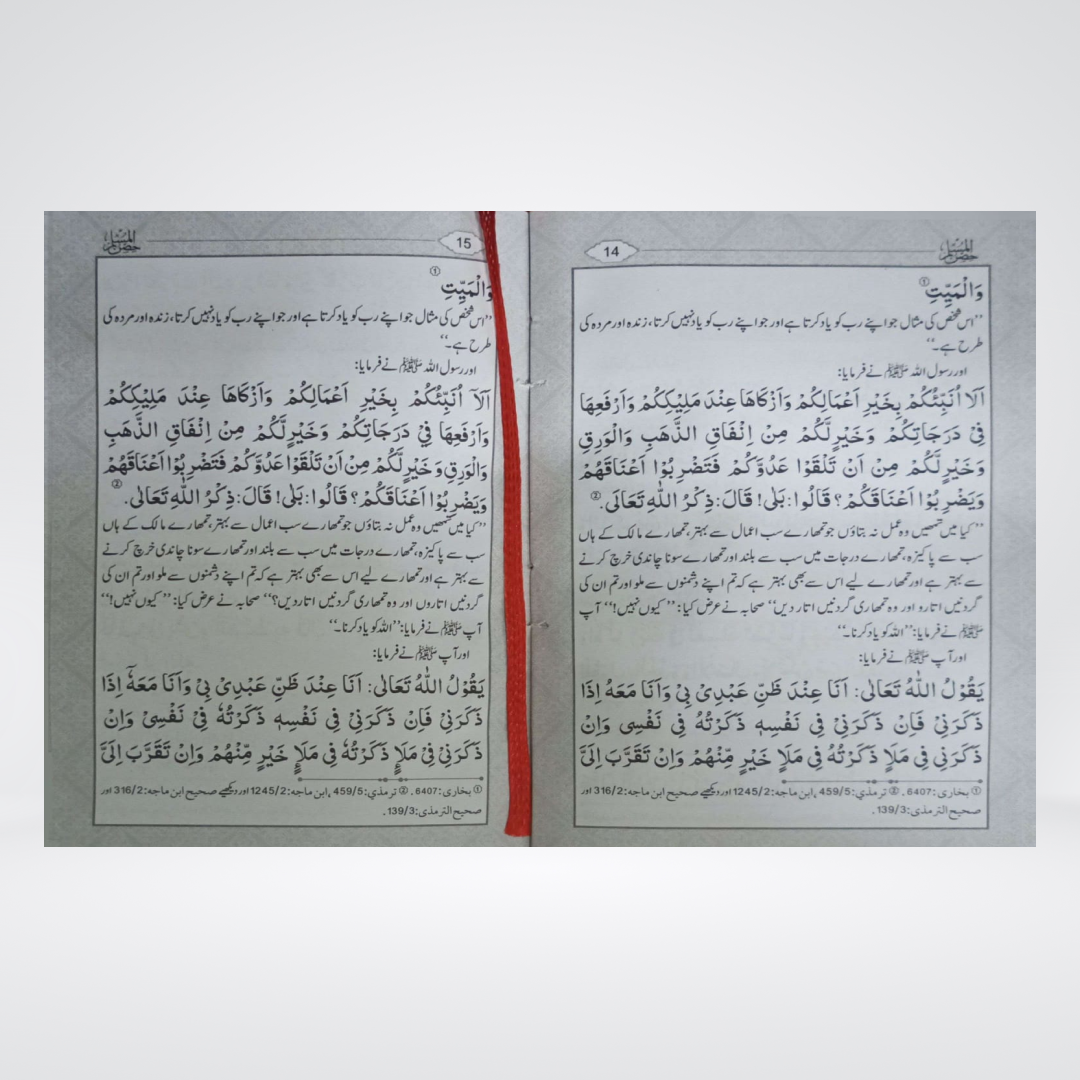 حصن المسلم
14
وَالْمَيِّتِ ①
’’اس شخص کی مثال جو اپنے رب کو یاد کرتا ہے اور جو اپنے رب کو یاد نہیں کرتا، زندہ اور مردہ کی
طرح ہے۔‘‘
اور رسول اللہ ﷺ نے فرمایا:
اَلَا اُنَبِّئُكُمْ بِخَيْرِ اَعْمَالِكُمْ وَاَزْكَاهَا عِنْدَ مَلِيْكِكُمْ وَاَرْفَعِهَا
فِيْ دَرَجَاتِكُمْ وَخَيْرٍ لَّكُمْ مِنْ اِنْفَاقِ الذَّهَبِ وَالْوَرِقِ
وَخَيْرٍ لَّكُمْ مِنْ اَنْ تَلْقَوْا عَدُوَّكُمْ فَتَضْرِبُوْا اَعْنَاقَهُمْ
وَيَضْرِبُوْا اَعْنَاقَكُمْ؟ قَالُوا: بَلٰى! قَالَ: ذِكْرُ اللّٰهِ تَعَالَى. ②
’’کیا میں تمھیں وہ عمل نہ بتاؤں جو تمھارے سب اعمال سے بہتر، تمھارے مالک کے ہاں
سب سے پاکیزہ، تمھارے درجات میں سب سے بلند اور تمھارے سونا چاندی خرچ کرنے
سے بہتر ہے اور تمھارے لیے اس سے بھی بہتر ہے کہ تم اپنے دشمنوں سے ملو اور تم ان کی
گردنیں اتارو اور وہ تمھاری گردنیں اتار دیں‘‘ صحابہ نے عرض کیا: ’’کیوں نہیں!‘‘ آپ
ﷺ نے فرمایا: ’’اللہ کو یاد کرنا۔‘‘
اور آپ ﷺ نے فرمایا:
يَقُوْلُ اللّٰهُ تَعَالٰى: اَنَا عِنْدَ ظَنِّ عَبْدِىْ بِىْ وَاَنَا مَعَهُ اِذَا
ذَكَرَنِيْ فَاِنْ ذَكَرَنِيْ فِي نَفْسِهٖ ذَكَرْتُهُ فِي نَفْسِى وَاِنْ
ذَكَرَنِي فِي مَلَاٍ ذَكَرْتُهُ فِي مَلَاٍ خَيْرٍ مِّنْهُمْ وَاِنْ تَقَرَّبَ اِلَىَّ
① بخاری: 6407 . ② ترمذي: 459/5 ، ابن ماجه: 1245/2 اور دیکھیے صحيح ابن ماجه: 316/2 اور
صحيح الترمذى: 139/3 .
حصن المسلم
15
وَالْمَيِّتِ ①
’’اس شخص کی مثال جو اپنے رب کو یاد کرتا ہے اور جو اپنے رب کو یاد نہیں کرتا، زندہ اور مردہ کی
طرح ہے۔‘‘
اور رسول اللہ ﷺ نے فرمایا:
اَلَآ اُنَبِّئُكُمْ بِخَيْرِ اَعْمَالِكُمْ وَاَزْكَاهَا عِنْدَ مَلِيْكِكُمْ
وَاَرْفَعِهَا فِيْ دَرَجَاتِكُمْ وَخَيْرٍ لَّكُمْ مِنْ اِنْفَاقِ الذَّهَبِ
وَالْوَرِقِ وَخَيْرٍ لَّكُمْ مِنْ اَنْ تَلْقَوْا عَدُوَّكُمْ فَتَضْرِبُوْا اَعْنَاقَهُمْ
وَيَضْرِبُوْا اَعْنَاقَكُمْ؟ قَالُوا: بَلٰى! قَالَ: ذِكْرُ اللّٰهِ تَعَالٰى. ②
’’کیا میں تمھیں وہ عمل نہ بتاؤں جو تمھارے سب اعمال سے بہتر، تمھارے مالک کے ہاں
سب سے پاکیزہ، تمھارے درجات میں سب سے بلند اور تمھارے سونا چاندی خرچ کرنے
سے بہتر ہے اور تمھارے لیے اس سے بھی بہتر ہے کہ تم اپنے دشمنوں سے ملو اور تم ان کی
گردنیں اتاروں اور وہ تمھاری گردنیں اتار دیں؟‘‘ صحابہ نے عرض کیا: ’’کیوں نہیں!‘‘
آپ ﷺ نے فرمایا: ’’اللہ کو یاد کرنا۔‘‘
اور آپ ﷺ نے فرمایا:
يَقُوْلُ اللّٰهُ تَعَالٰى: اَنَا عِنْدَ ظَنِّ عَبْدِىْ بِىْ وَاَنَا مَعَهٗٓ اِذَا
ذَكَرَنِيْ فَاِنْ ذَكَرَنِيْ فِي نَفْسِهٖ ذَكَرْتُهٗ فِيْ نَفْسِىْ وَاِنْ
ذَكَرَنِيْ فِيْ مَلَاٍ ذَكَرْتُهٗ فِي مَلَاٍ خَيْرٍ مِّنْهُمْ وَاِنْ تَقَرَّبَ اِلَىَّ
① بخاری: 6407 . ② ترمذي: 459/5 ، ابن ماجه: 1245/2 اور دیکھیے صحيح ابن ماجه: 316/2 اور
صحيح الترمذى: 139/3 .